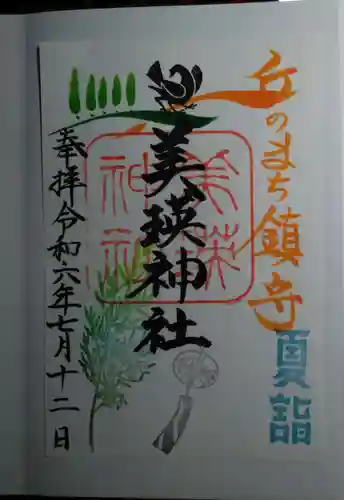 丘のまち鎮守
夏詣
美瑛神社
美瑛神社
奉拝令和六年七月十二日